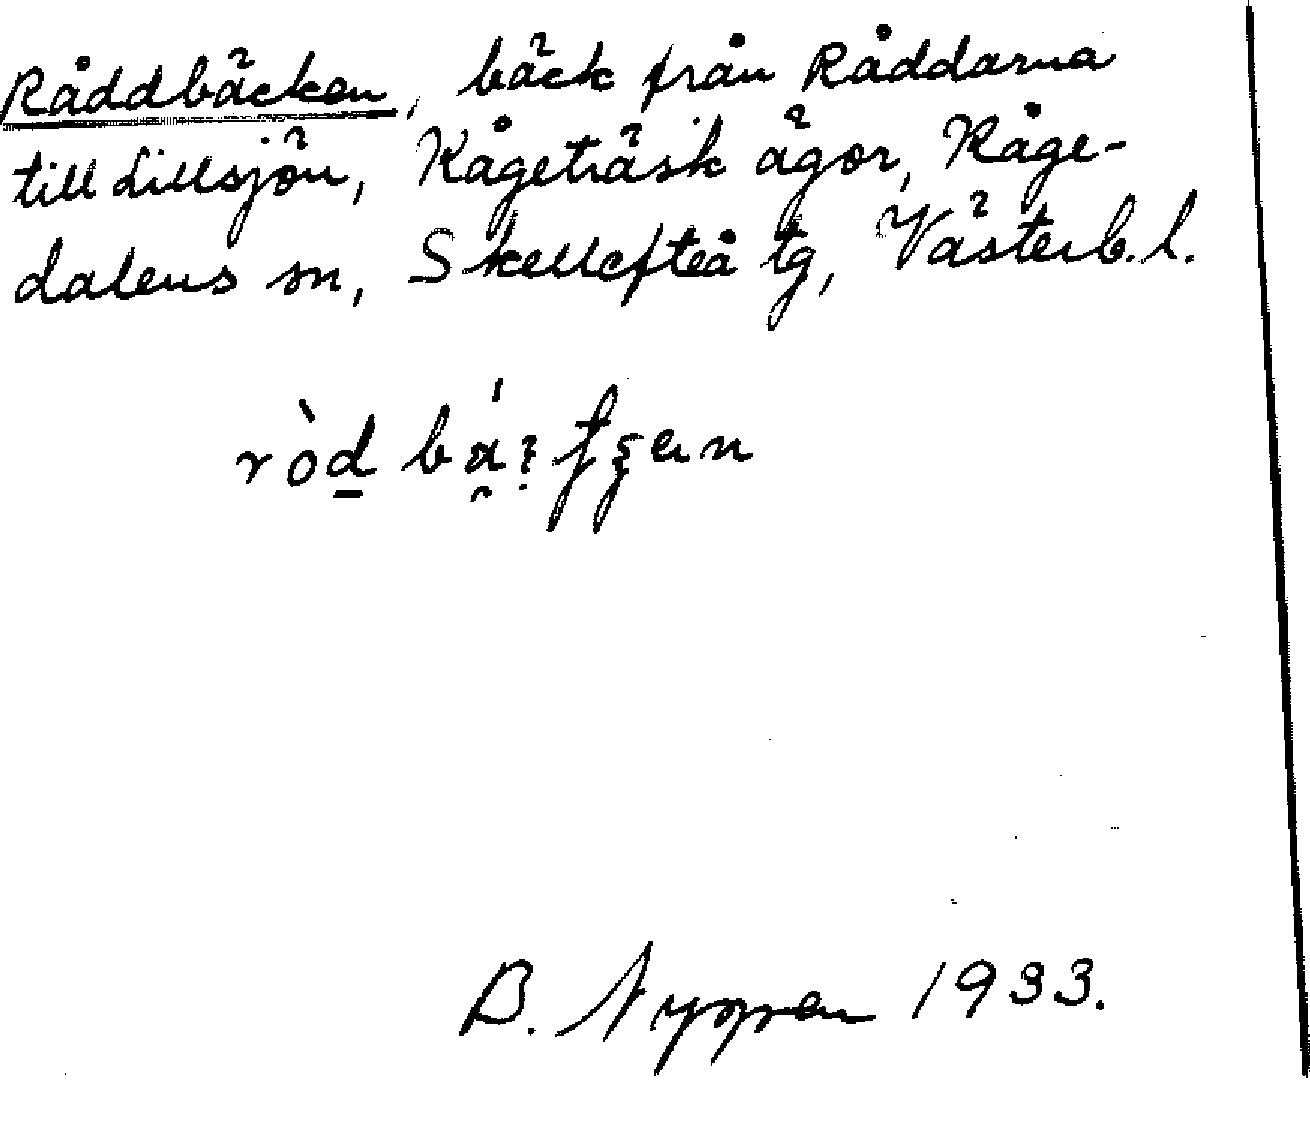 Råddbäcken, bäck från Råddarna
till Lillsjön, Kågeträsk ägor, Kåge-
dalens sn, Skellefteå tg, Västerb. l.
B. Nygren 1933.